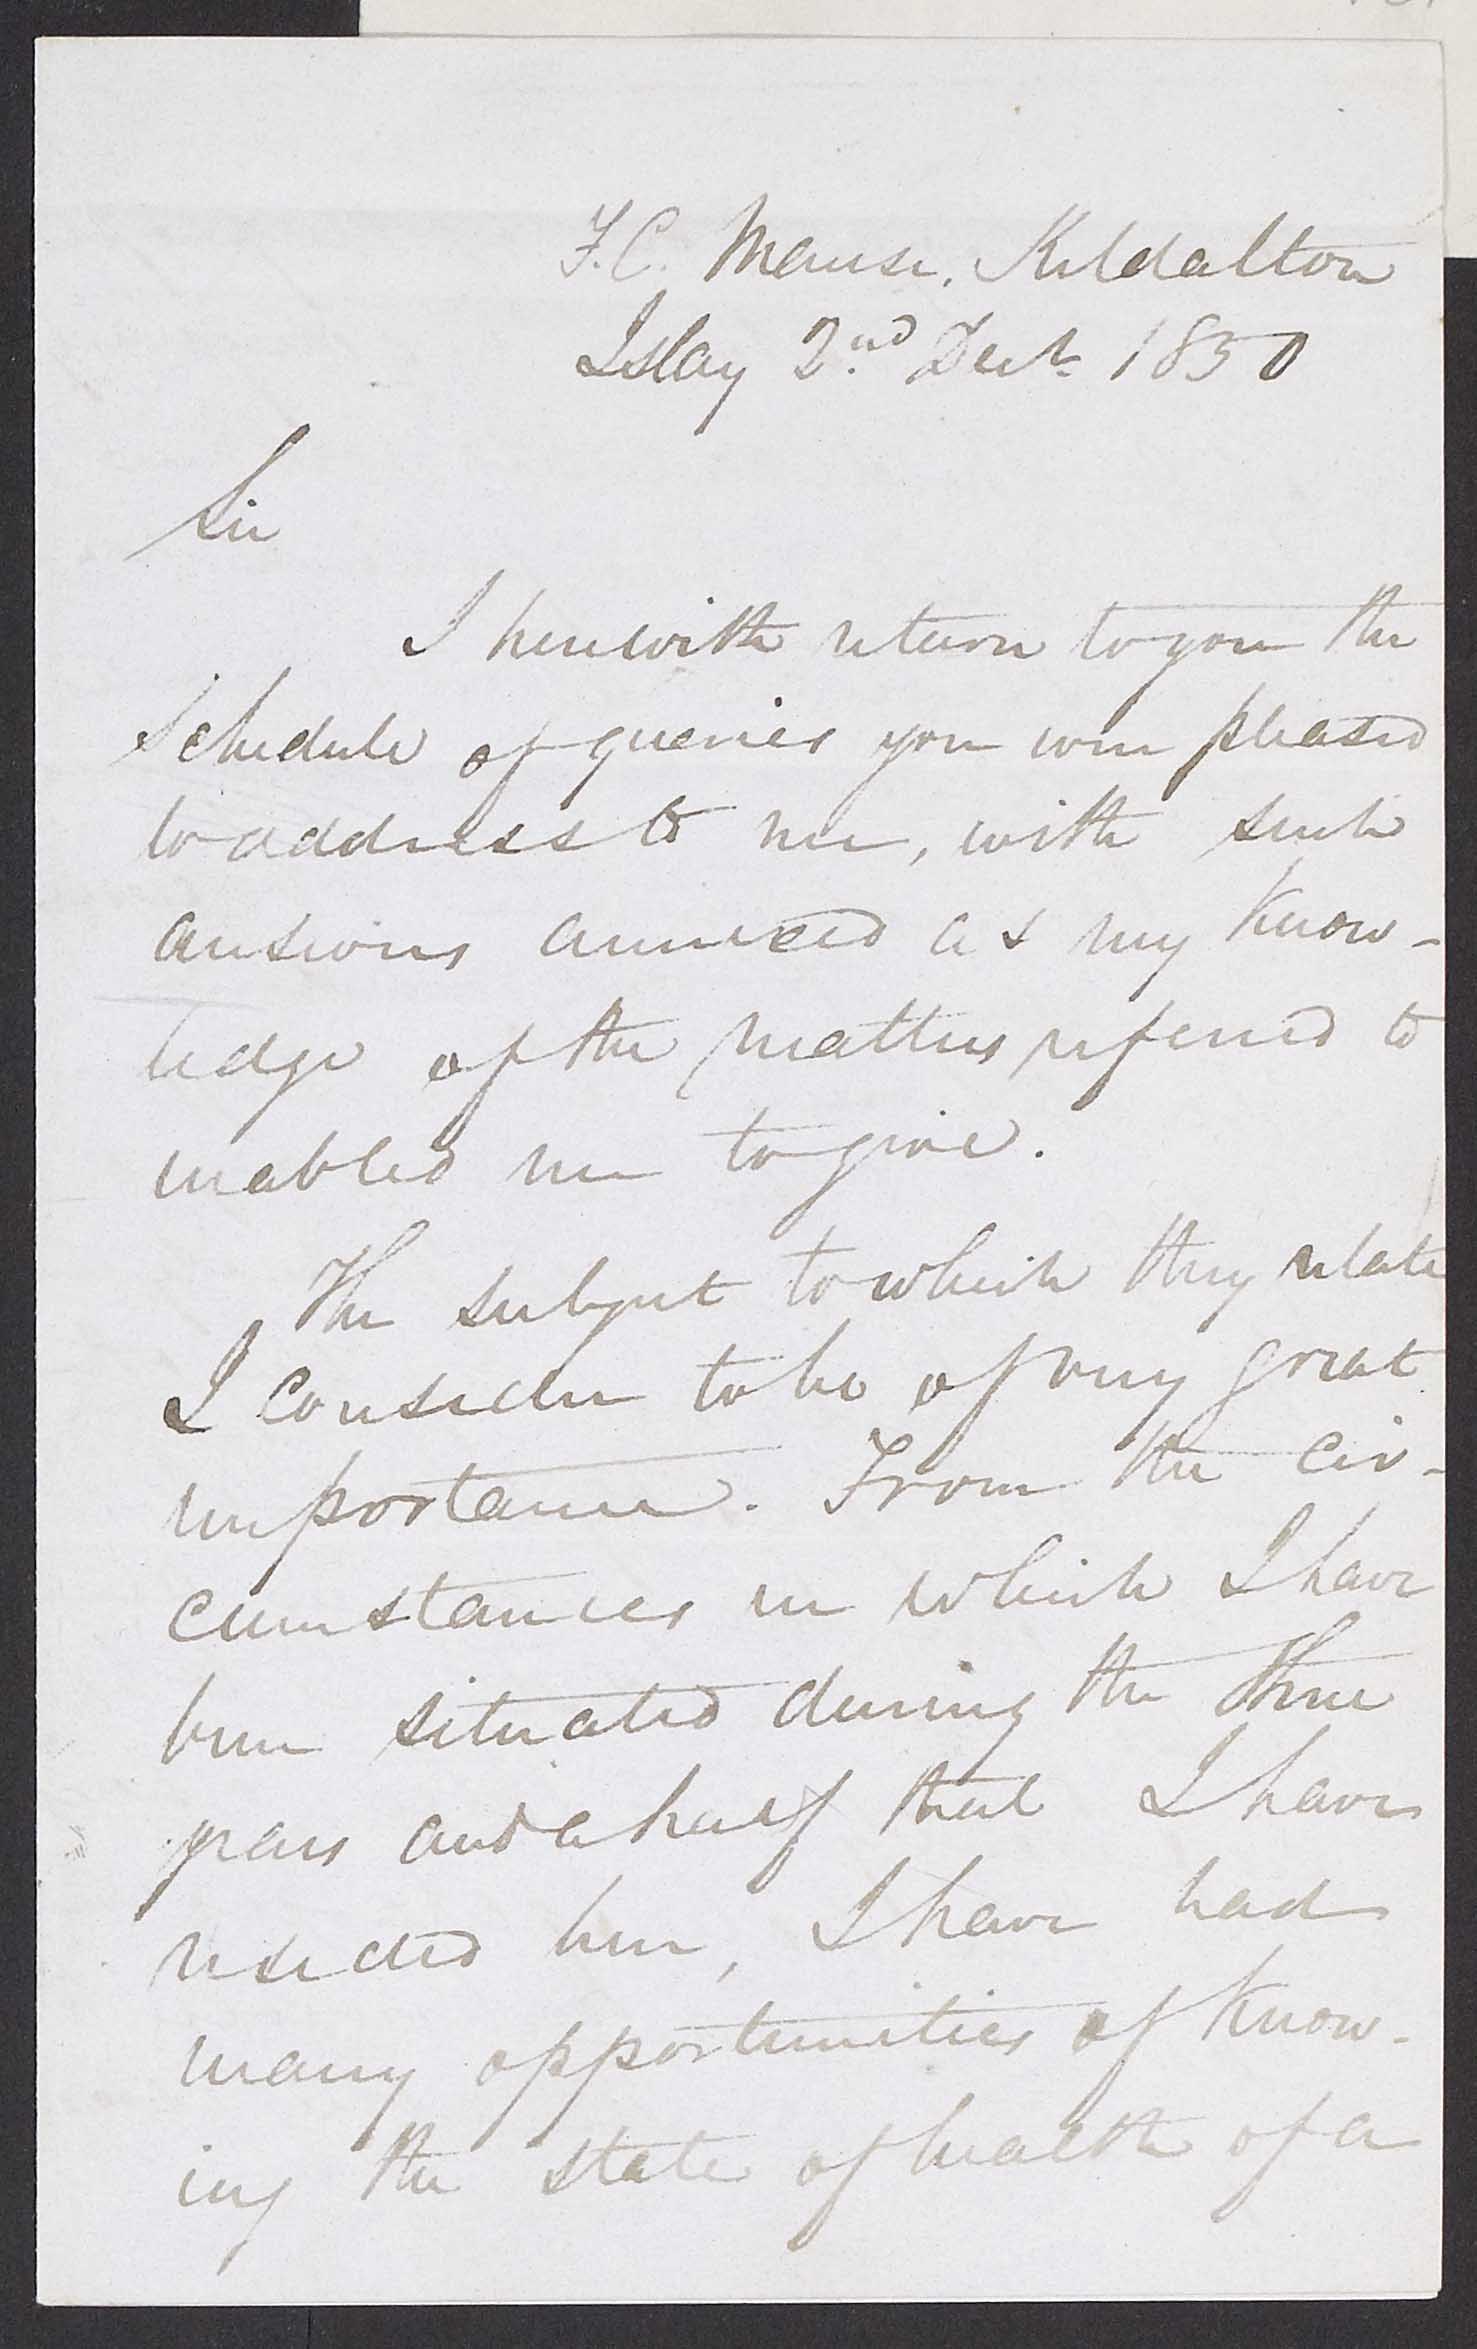 F.C. Manse, Kildalton
Islay 2nd Decr. 1850
Sir
I herewith return to you the
Schedule of queries you were pleased
to address to me, with such
answers annexed as my know-
ledge of the matters referred to
enabled me to give.
The subject to which they relate
I consider to be of very great
importance. From the cir-
cumstances in which I have
been situated during the three
years and a half that I have
resided here, I have had
many opportunities of know-
ing the state of health of a